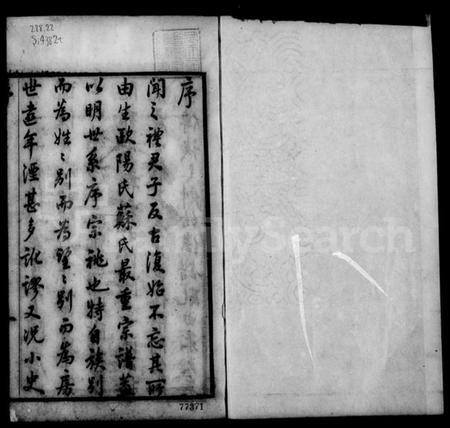 288.22
序
聞之禮君子反古復始不忘其所
由生歐陽氏蘇氏最重宗譜蓋
以明世系序宗祧也特自族別
而為姓姓別而為望望別而為房
世遠年湮甚多訛謬又況小史
77371
FamilySearch